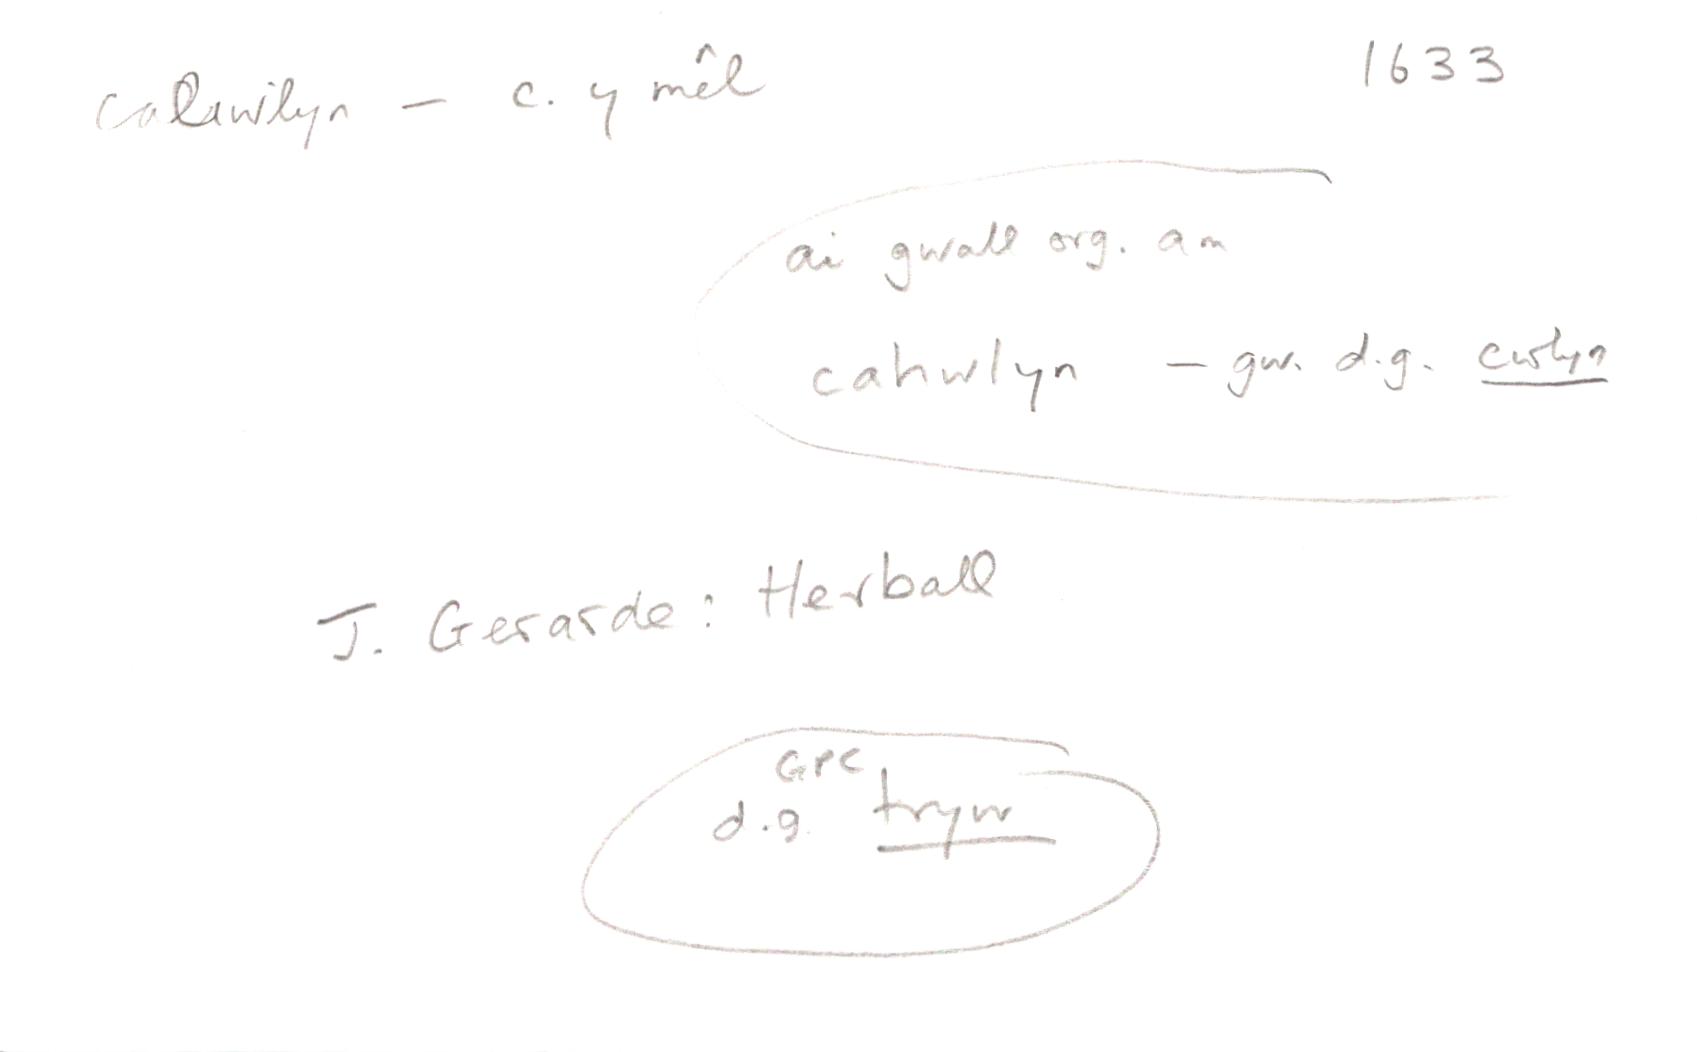 calawilyn — c. y mêl 1633
ai gwall org. am
cahwlyn — gw. d.g. cwlyn
J. Gerarde: Herball
GPC
d.g. tryw